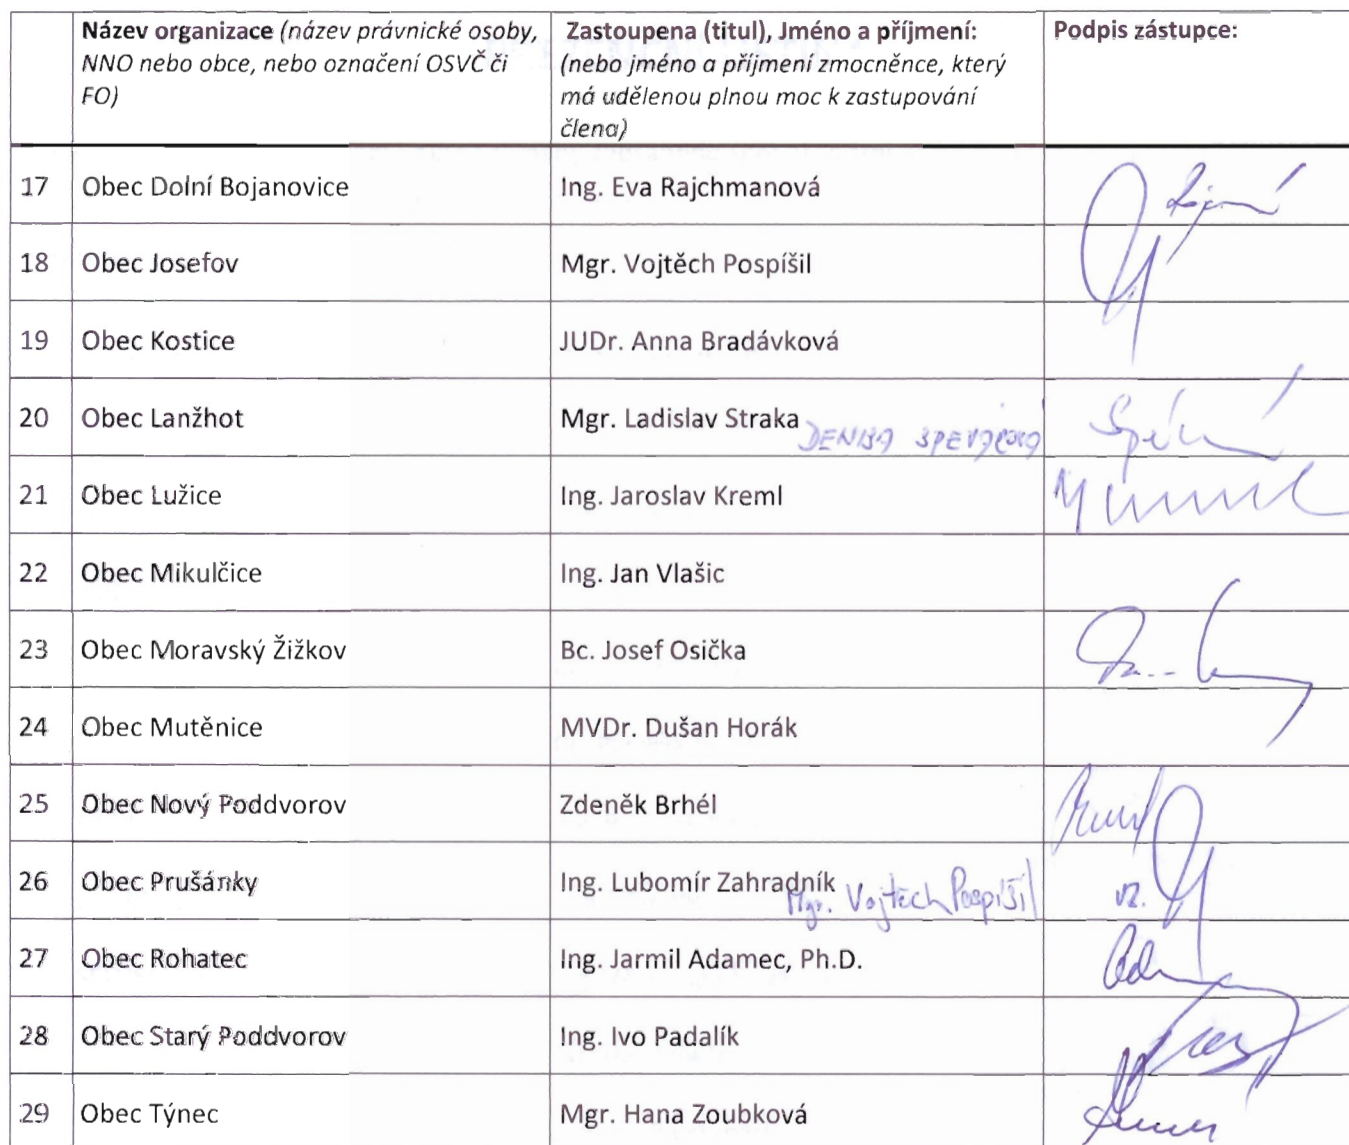 Název organizace (název právnické osoby,
NNO nebo obce, nebo označení OSVČ či
FO)
Zastoupena (titul), Jméno a příjmení:
(nebo jméno a příjmení zmocněnce, který
má udělenou plnou moc k zastupování
člena)
Podpis zástupce:
17 Obec Dolní Bojanovice Ing. Eva Rajchmanová
18 Obec Josefov Mgr. Vojtěch Pospíšil
19 Obec Kostice JUDr. Anna Bradávková
20 Obec Lanžhot Mgr. Ladislav Straka
DENISA
21 Obec Lužice Ing. Jaroslav Kreml
22 Obec Mikulčice Ing. Jan Vlašic
23 Obec Moravský Žižkov Bc. Josef Osička
24 Obec Mutěnice MVDr. Dušan Horák
25 Obec Nový Poddvorov Zdeněk Brhél
26 Obec Prušánky Ing. Lubomír Zahradník
Mgr. Vojtěch Pospíšil vz.
27 Obec Rohatec Ing. Jarmil Adamec, Ph.D.
28 Obec Starý Poddvorov Ing. Ivo Padalík
29 Obec Týnec Mgr. Hana Zoubková